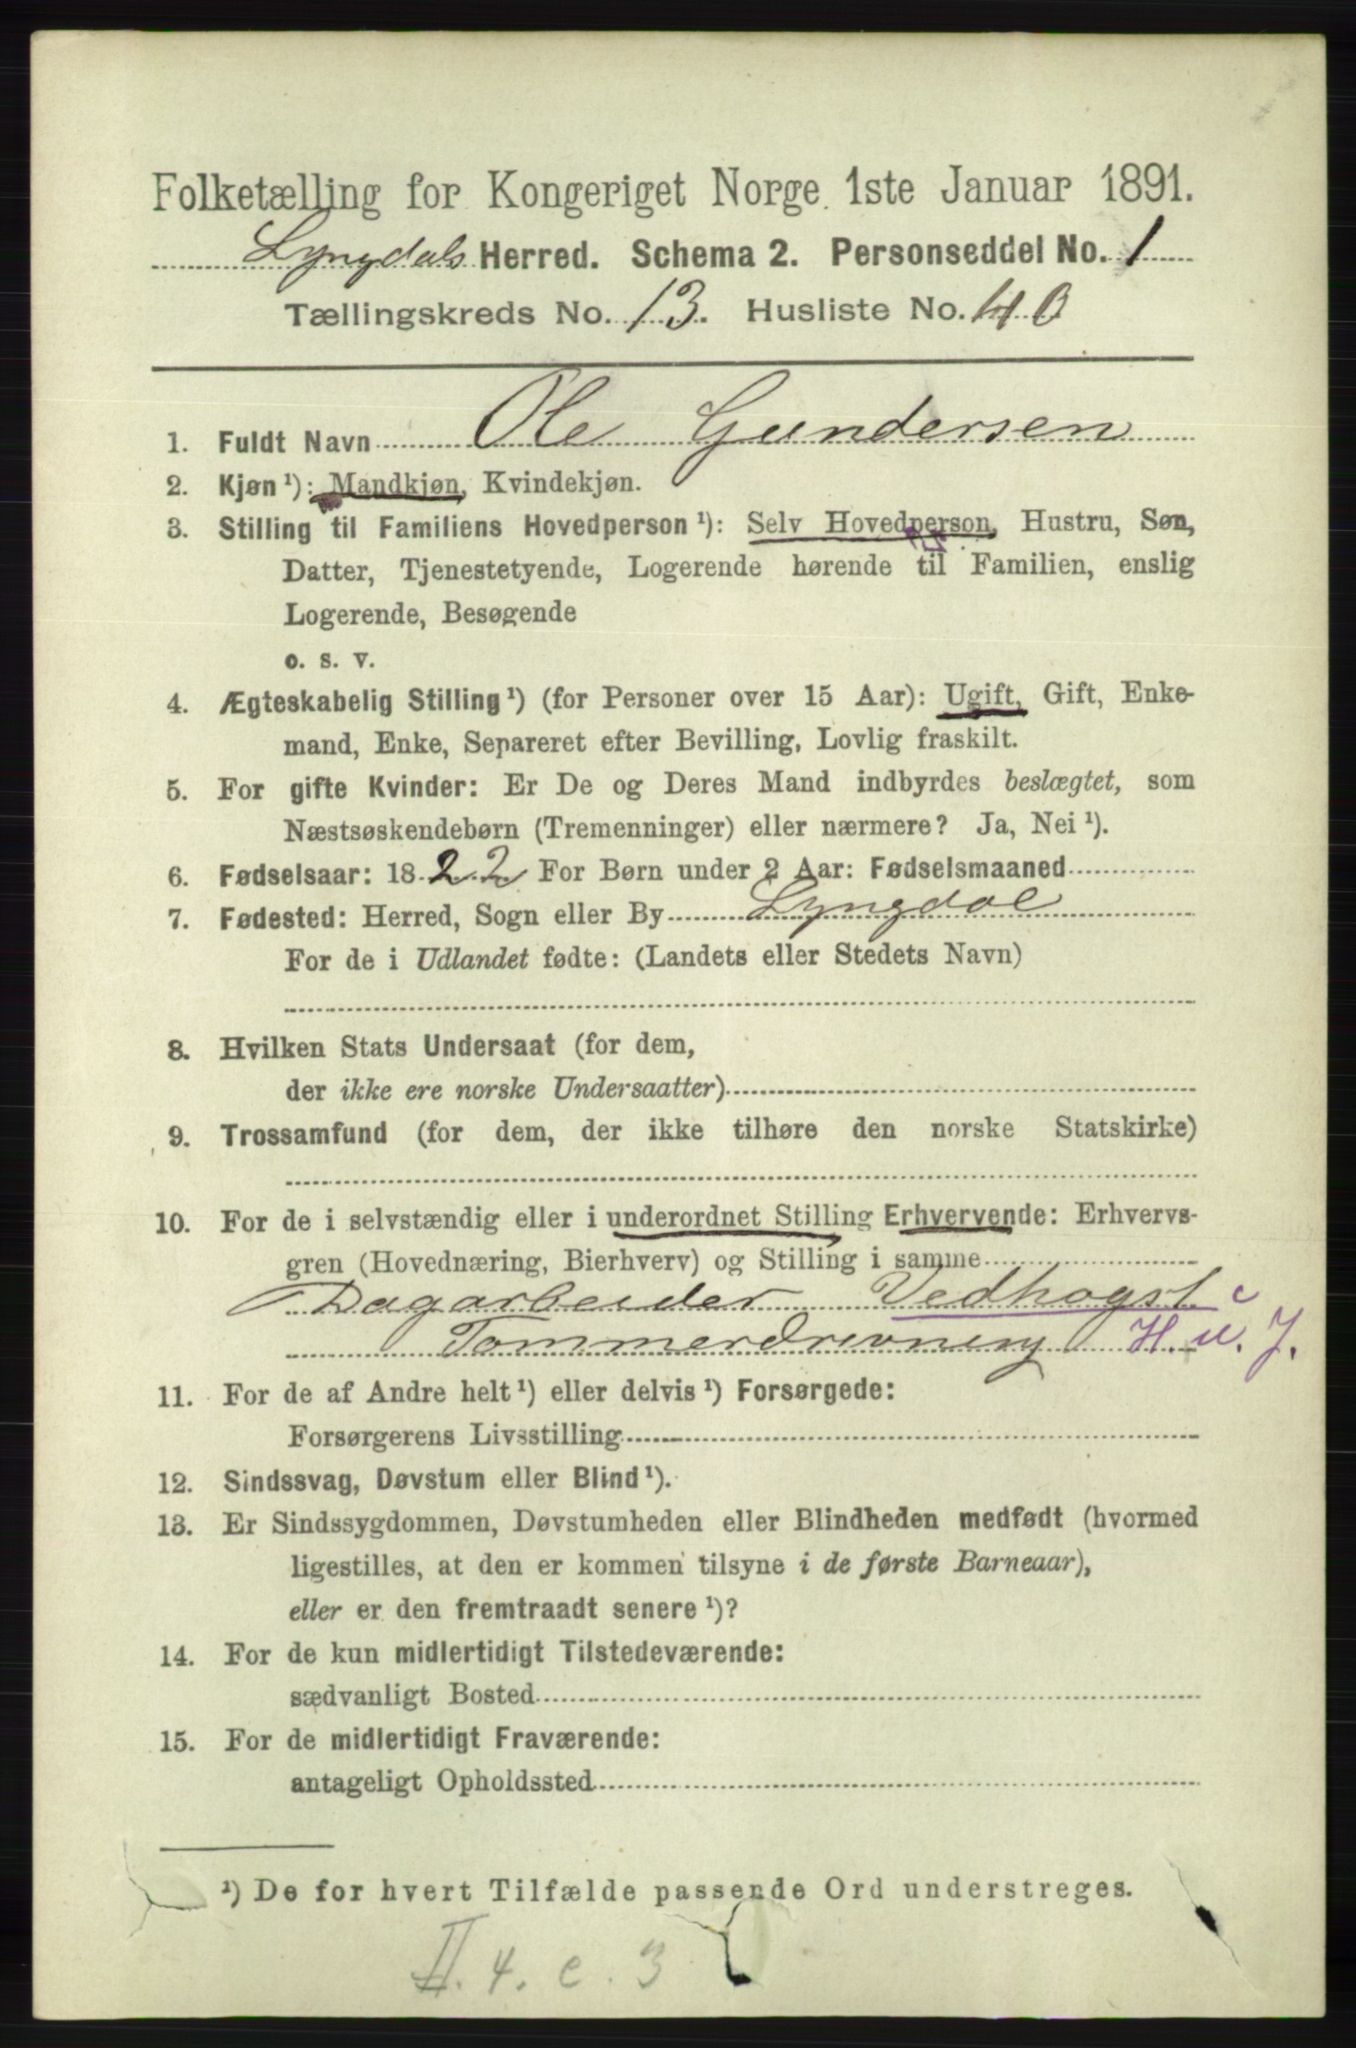 Folketælling for Kongeriget Norge 1ste Januar 1891.
Lyngdals Herred. Schema 2. Personseddel No. 1
Tællingskreds No. 13. Husliste No. 40
1. Fuldt Navn Ole Gundersen
2. Kjøn ¹): Mandkjøn, Kvindekjøn.
3. Stilling til Familiens Hovedperson ¹): Selv Hovedperson, Hustru, Søn,
Datter, Tjenestetyende, Logerende hørende til Familien, enslig
Logerende, Besøgende
o. s. v.
4. Ægteskabelig Stilling ¹) (for Personer over 15 Aar): Ugift, Gift, Enke-
mand, Enke, Separeret efter Bevilling, Lovlig fraskilt.
5. For gifte Kvinder: Er De og Deres Mand indbyrdes beslægtet, som
Næstsøskendebørn (Tremenninger) eller nærmere? Ja, Nei ¹).
6. Fødselsaar: 1822 For Børn under 2 Aar: Fødselsmaaned
7. Fødested: Herred, Sogn eller By Lyngdal
For de i Udlandet fødte: (Landets eller Stedets Navn)
8. Hvilken Stats Undersaat (for dem,
der ikke ere norske Undersaatter)
9. Trossamfund (for dem, der ikke tilhøre den norske Statskirke)
10. For de i selvstændig eller i underordnet Stilling Erhvervende: Erhvervs-
gren (Hovednæring, Bierhverv) og Stilling i samme
Dagarbeider Vedhogst
Tommerdrivning H. u. J.
11. For de af Andre helt ¹) eller delvis ¹) Forsørgede:
Forsørgerens Livsstilling
12. Sindssvag, Døvstum eller Blind ¹).
13. Er Sindssygdommen, Døvstumheden eller Blindheden medfødt (hvormed
ligestilles, at den er kommen tilsyne i de første Barneaar),
eller er den fremtraadt senere ¹)?
14. For de kun midlertidigt Tilstedeværende:
sædvanligt Bosted
15. For de midlertidigt Fraværende:
antageligt Opholdssted
¹) De for hvert Tilfælde passende Ord understreges.
II. 4. e. 3